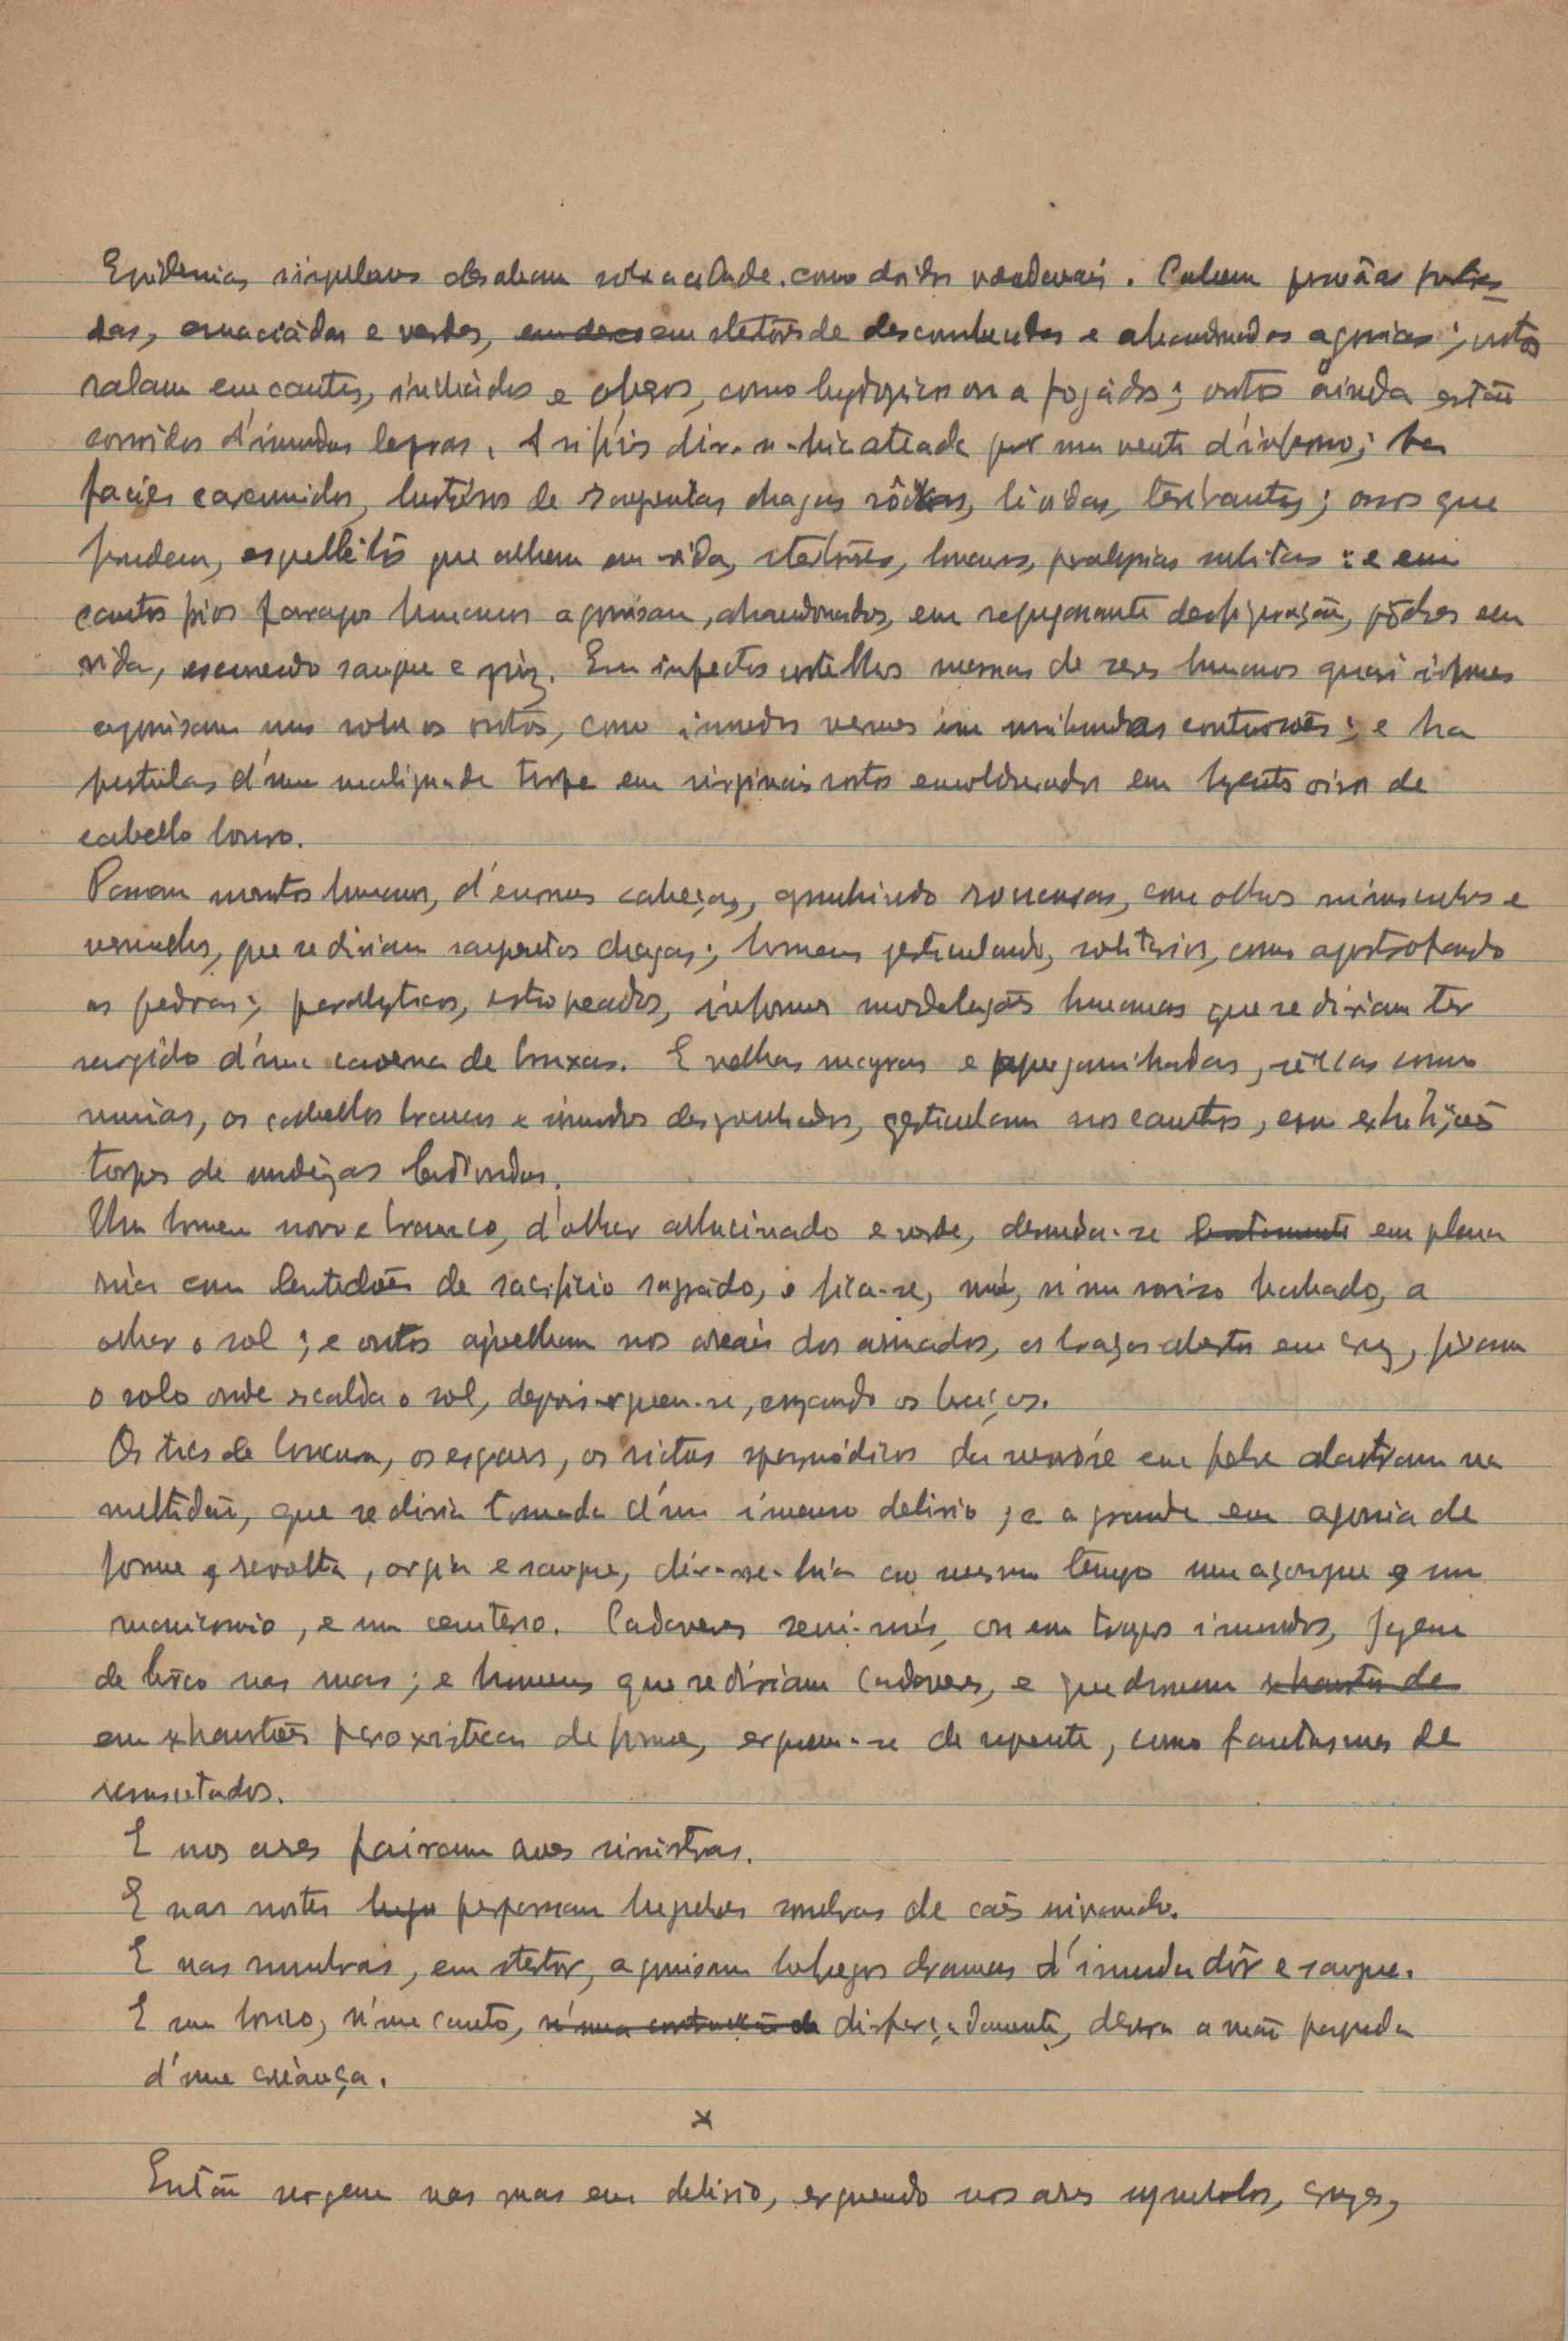 Epidemias singulares desabam sobre a cidade, como doidos vendavaes. Cahem
das, emaciádas e verdes, em stertôres de desconhecidas e abandonadas agonias; outros
ralam em cantos, inchádos e obesos, como hydropicos ou afogádos; outros ainda estão
corroidos d'immundas lepras. A siphilis dir-se-hia ateada por um vento d'inferno; ha
facies carcomidos, de sangrentas chagas rôxas, lividas, ; ossos que
fendem, esquelêtos que olham em vida, stertôres, loucuras, subitas: e em
cantos frios farrapos humanos agonisam, abandonados, em repugnante desfiguração, pôdres em
vida, escorrendo sangue e púz. Em infectas vielllas massas de seres humanos quasi informes
agonisam uns sobre os outros, como immundos vermes em moribundas contorsões; e ha
pustulas d'uma malignada torpe em virginais rostos emoldurados em de
cabello louro.
Passam monstros humanos, d'enormes cabeças, grunhindo, com olhos minusculos e
vermelhos, que se diriam sangrentas chagas; homens gesticulando, solitarios, como apostrofando
as pedras; paralyticos, estropeados, informes modelações humanas que se diriam ter
surgido d'uma caverna de bruxas. E velhas magras e apergaminhadas, sêccas como
mumias, os cabellos brancos e immundos desgrenhados, gesticulam nos cantos, em exhibições
torpes de nudêzas hediondas.
Um homem novo e branco, d'olhar allucinado e verde, desnuda-se lentamente em plena
rúa com lentidões de sacrificio sagrádo, e fica-se, nú, n'um sorriso, a
olhar o sol; e outros ajoelham nos areais dos, os braços abertos em cruz, fixam
o solo onde escalda o sol, depois erguem-se, os braços.
Os tics de loucura, os esgares, os rictus spasmódicos da nevróse em febre alastram na
multidão, que se diria tomada d'um imenso delirio; e a grande em agonia de
fome e revolta, orgia e sangue, dir-se-hia ao mesmo tempo um açougue e um
manicomio, e um cemiterio. Cadaveres semi-nús, ou em trapos immundos, jazem
de bôrco nas ruas; e homens que se diriam cadaveres, e que dormem exhaustos de
em exhaustões paroxisticas de fome, erguem-se de repente, como fantasmas de
resuscitados.
E nos ares pairam aves sinistras.
E nas noites lugu perpassam lugubres sombras de cães uivando.
E nas sombras, em stertor, agonisam lobregos dramas d'immunda dôr e sangue.
E um louco, n'um canto, n'uma disfarçadamente, devora a mão pequena
d'uma criança.
x
Então surgem nas ruas em delirio, erguendo nos ares symbolos, cruzes,